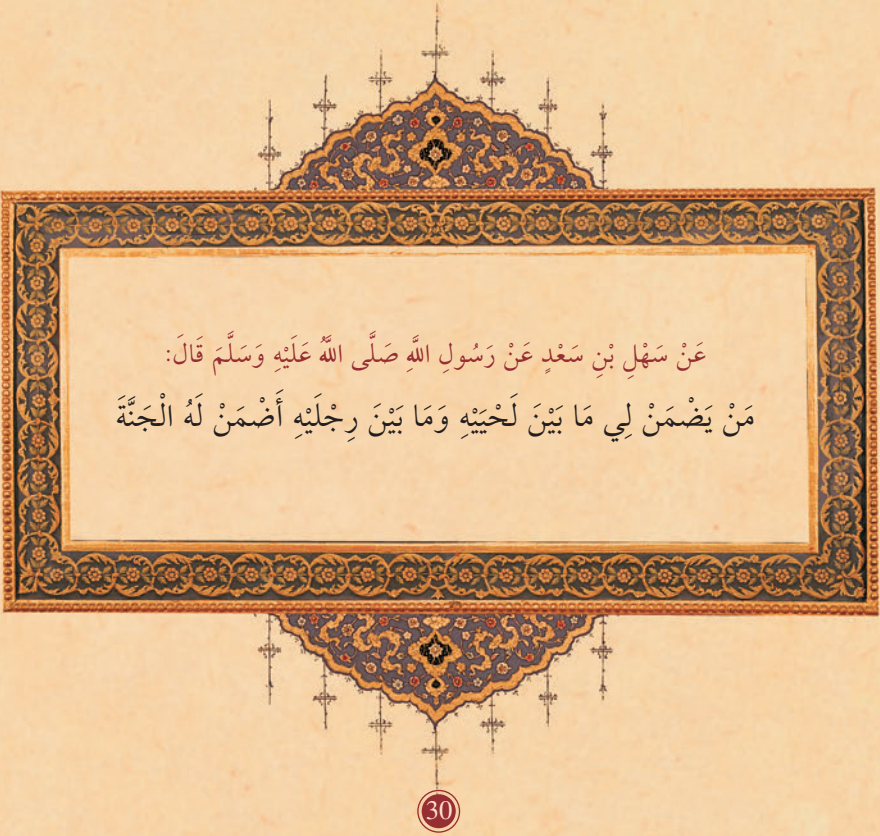 عَنْ سَهْلِ بْنِ سَعْدٍ عَنْ رَسُولِ اللَّهِ صَلَّى اللَّهُ عَلَيْهِ وَسَلَّمَ قَالَ:
مَنْ يَضْمَنْ لِي مَا بَيْنَ لَحْيَيْهِ وَمَا بَيْنَ رِجْلَيْهِ أَضْمَنْ لَهُ الْجَنَّةَ
30